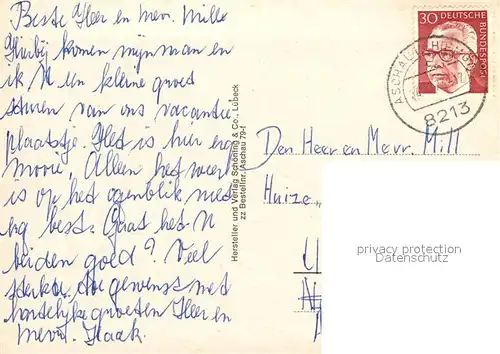 Beste Heer en mev. Mille
Hierbij komen mijn man en
ik U een kleine groet
sturen van ons vacantie
plaatsje. Het is hier erg
mooi, Alleen het weer
is op het ogenblik niet
erg best. Gaat het U
beiden goed? Veel
sterkte toe gewenst met
hartelijke groeten Heer en
mevr. Haak.
Hersteller und Verlag Schöning & Co., Lübeck
zz Bestellnr. Aschau 79-t
30 DEUTSCHE BUNDESPOST
ASCHAU
8213
Den Heer en Mevr. Mill
Huize
privacy protection
Datenschutz